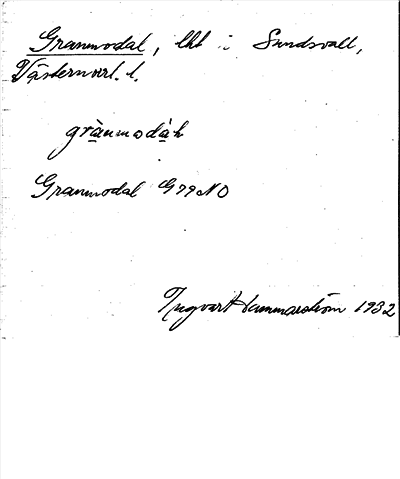 Granmodal, lht i Sundsvall,
Västernorrl. l.
grànmodàh
Granmodal G 99 NO
Ingvar Hammarström 1932